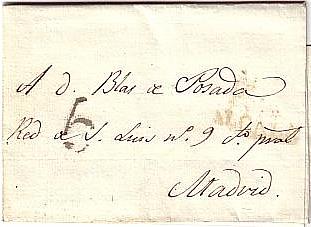 A d. Blas de Posada
Red de S. Luis nº. 9 pral
6
Madrid.